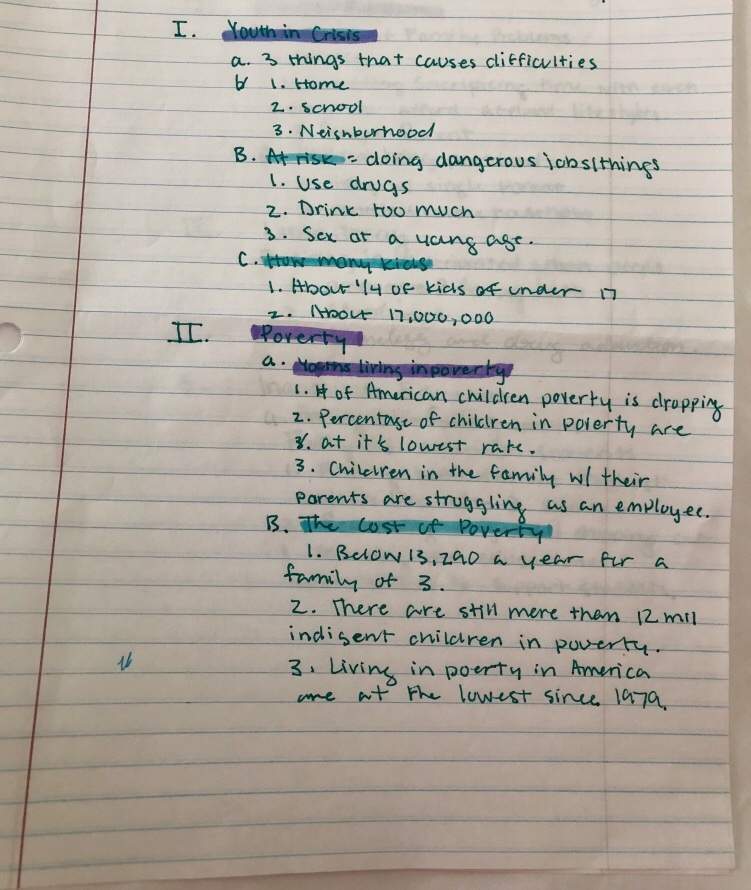 I. Youth in Crisis
a. 3 things that causes difficulties
b 1. Home
2. school
3. Neighburhood
B. At risk = doing dangerous jobs/things
1. Use drugs
2. Drink too much
3. Sex at a yang age.
C. How many kids
1. About 1/4 of kids of under 17
2. About 17,000,000
II. Poverty
a. Youths living in poverty
1. # of American children poverty is dropping
2. Percentage of children in poverty are
3. at it's lowest rate.
3. Children in the family w/ their
parents are struggling as an employee.
B. The Cost of Poverty
1. Below 13,290 a year for a
family of 3.
2. There are still more than 12 mil
indigent children in poverty.
3. Living in poerty in America
are at the lowest since 1979.